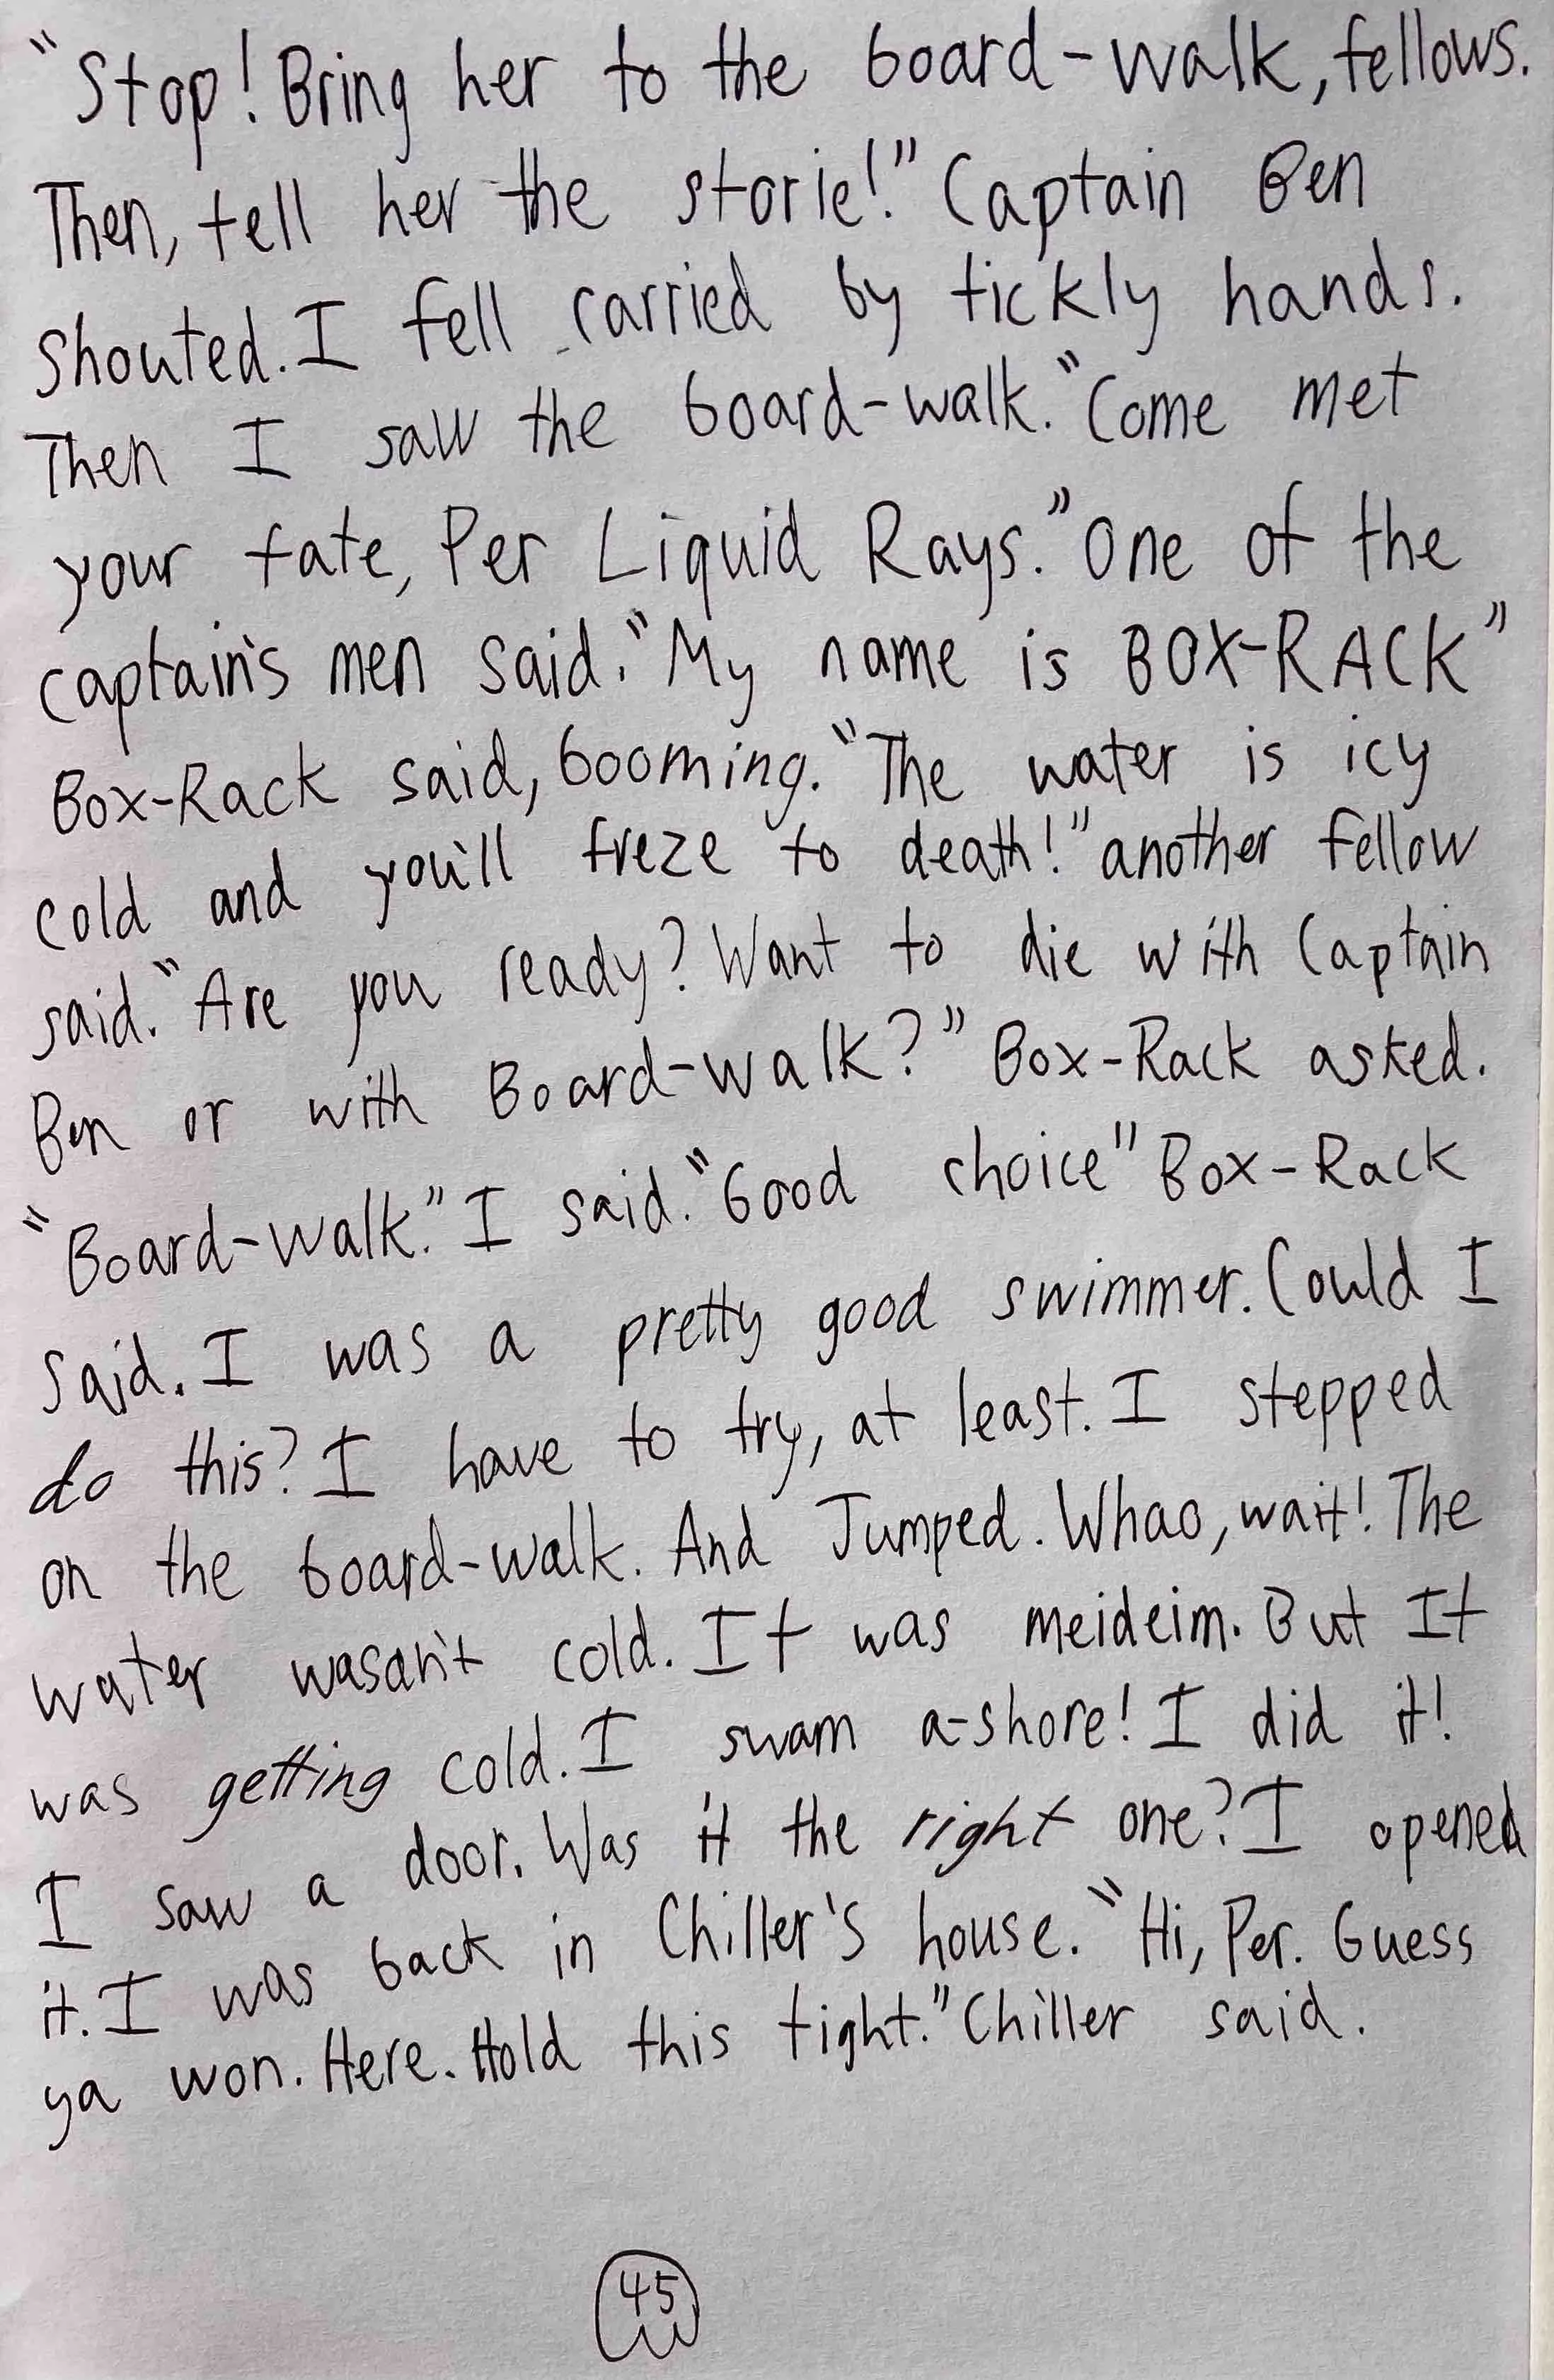 "Stop! Bring her to the board-walk, fellows.
Then, tell her the storie!" Captain Ben
shouted. I fell carried by tickly hands.
Then I saw the board-walk. "Come met
your fate, Per Liquid Rays." One of the
captain's men said. "My name is BOX-RACK"
Box-Rack said, booming. "The water is icy
cold and you'll freze to death!" another fellow
said. "Are you ready? Want to die with Captain
Ben or with Board-walk?" Box-Rack asked.
"Board-walk." I said. "Good choice" Box-Rack
said. I was a pretty good swimmer. Could I
do this? I have to try, at least. I stepped
on the board-walk. And Jumped. Whao, wait! The
water wasan't cold. It was meideim. But It
was getting cold. I swam a-shore! I did it!
I saw a door. Was it the right one? I opened
it. I was back in Chiller's house. "Hi, Per. Guess
ya won. Here. Hold this tight." Chiller said.
45